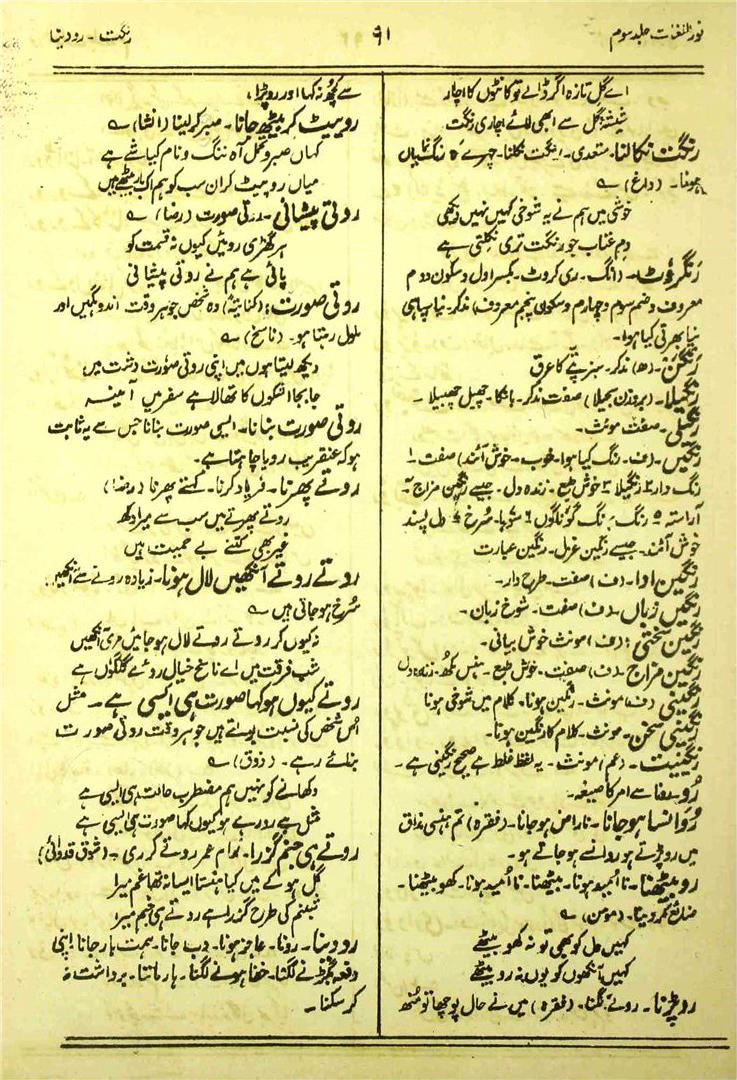 نور اللغات جلد سوم
۹۱
رنگت - رو دینا
اے گل تازہ اگر ڈالے تو کانٹوں کا اچار
شیشۂ گل سے ابھی لائے اچاری رنگت
رنگت نکالنا۔ متعدی۔ رنگت نکلنا۔ چہرے کا رنگ نمایاں
ہونا۔ (داغ) ؎
خوشی میں ہم نے یہ شوخی کہیں نہیں دیکھی
دمِ عتاب جو رنگت تری نکلتی ہے
رنگروٹ۔ (انگ۔ ری کروٹ۔ بکسر اول و سکون دوم
معروف و ضم سوم و چہارم و سکون پنجم معروف) مذکر۔ نیا سپاہی
نیا بھرتی کیا ہوا۔
رنگن۔ (ھ) مذکر۔ سبز پتّے کا عرق
رنگیلا۔ (بروزن سجیلا) صفت مذکر۔ بانکا۔ چھیل چھبیلا۔
رنگیلی۔ صفت مونث۔
رنگین۔ (ف۔ رنگ کیا ہوا۔ خوب۔ خوش آئند) صفت ۱
رنگ دار ۲ رنگیلا ۳ خوش طبع۔ زندہ دل۔ جیسے رنگین مزاج ۴
آراستہ ۵ رنگ برنگ گوناگوں ۶ سُرخ ۷ دل پسند
خوش آئند۔ جیسے رنگین غزل۔ رنگین عبارت
رنگین ادا۔ (ف) صفت۔ طرح دار۔
رنگین زباں۔ (ف) صفت۔ شوخ زبان۔
رنگین سخنی۔ (ف) مونث خوش بیانی۔
رنگین مزاج۔ (ف) صفت۔ خوش طبع۔ ہنس مکھ۔ زندہ دل
رنگینی (ف) مونث۔ رنگین ہونا۔ کلام میں شوخی ہونا
رنگینی سخن۔ مونث۔ کلام کا رنگین ہونا۔
رنگینیت۔ (عم) مونث۔ یہ لفظ غلط ہے صحیح رنگینی ہے۔
رُو۔ سے امر کا صیغہ۔
رُوانسا ہو جانا۔ ناراض ہو جانا۔ (فقرہ) تم ہنسی مذاق
میں رو پڑتے ہو روانسے ہو جاتے ہو۔
رو بیٹھنا۔ نا امید ہونا۔ بیٹھنا۔ نا اُمید ہونا۔ کھو بیٹھنا۔
ضائع کر دینا۔ (مومن) ؎
کہیں دل کو بھی تو نہ کھو بیٹھے
کہیں آنکھوں کو یوں نہ رو بیٹھے
رو پڑنا۔ رونے لگنا۔ (فقرہ) میں نے حال پوچھا تو مُنھ
سے کچھ نہ کہا اور رو پڑا،
رو پیٹ کر بیٹھ جانا۔ صبر کر لینا (انشا) ؎
کہاں صبر و تحمل آہ ننگ و نام کیا شے ہے
میاں رو پیٹ کر ان سب کو ہم اک بار بیٹھے ہیں
روتی پیشانی۔ روتی صورت (رضا) ؎
ہر گھڑی روئیں کیوں نہ قسمت کو
پائی ہے ہم نے روتی پیشانی
روتی صورت؛ (کنایۃً) وہ شخص جو ہر وقت اندوہگیں اور
ملول رہتا ہو۔ (ناسخ) ؎
دیکھ لیتا ہوں میں اپنی روتی صورت دشت میں
جابجا اشکوں کا تھالا ہے سفر میں آئینہ
روتی صورت بنانا۔ ایسی صورت بنانا جس سے یہ ثابت
ہو کہ عنقریب رویا چاہتا ہے۔
روتے پھرنا۔ فریاد کرنا۔ کہتے پھرنا (رضا)
روتے پھرتے ہیں سب سے میرا دکھ
غیر بھی کتنے بے حمیت ہیں
روتے روتے آنکھیں لال ہونا۔ زیادہ رونے سے آنکھیں
سُرخ ہو جاتی ہیں ؎
نہ کیوں کر روتے روتے لال ہو جائیں مری آنکھیں
شب فرقت میں اے ناسخ خیال روئے گلگوں ہے
روتے کیوں ہو کہا صورت ہی ایسی ہے۔ مثل
اُس شخص کی نسبت بولتے ہیں جو ہر وقت روتی صورت
بنائے رہے۔ (ذوق) ؎
دکھانے کو نہیں ہم مضطرب حالت ہی ایسی ہے
مثل ہے رو رہے ہو کیوں کہا صورت ہی ایسی ہے
روتے ہی جنم گزرا۔ تمام عمر روتے گزری۔ (شوق قدوائی)
گل ہو کے میں کیا ہنستا ایسا نہ تھا غم میرا
شبنم کی طرح گزرا ہے روتے ہی جنم میرا
رو دینا۔ رونا۔ عاجز ہونا۔ دب جانا۔ ہمت ہار جانا اپنی
دفعہ بگڑنے لگنا۔ خفا ہونے لگنا۔ ہار ماننا۔ برداشت نہ
کر سکنا۔